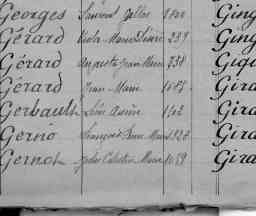 Georges Laurent Gilles 1800 Ging
Gérard Marie Désiré 239 Ging
Gérard Auguste 238 Gigu
Gérard Jean Marie 1685 Gira
Gerbault Léon Aimé 1142 Gira
Gernó François Pierre Marie 1323 Gira
Gernot Jules Célestin Marie 1659 Gira